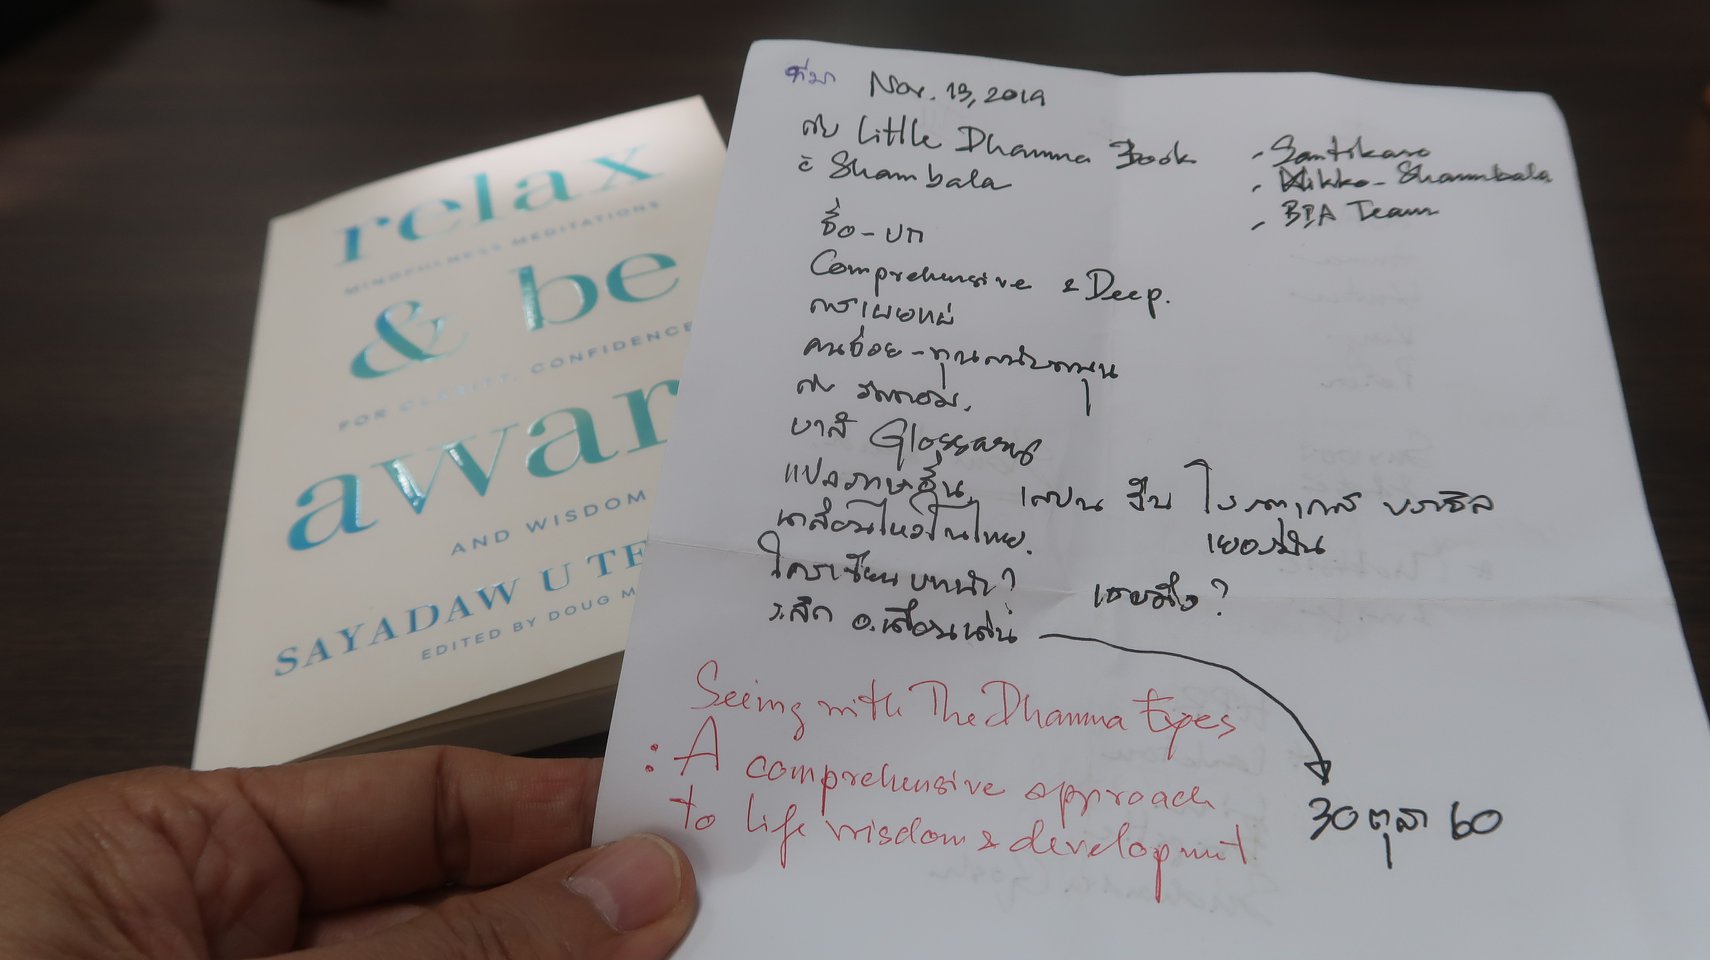 relax
MINDFULNESS MEDITATIONS
& be
FOR CLARITY, CONFIDENCE
awar
AND WISDOM
SAYADAW U TE
EDITED BY DOUG M
ที่มา Nov. 13, 2019
กับ Little Dhamma Book
c̄ Shambala
- Santikaro
- Nikko - Shambala
- BIA Team
ชื่อ - ปก
Comprehensive & Deep.
การเผยแผ่
คนช่วย - ทุนสนับสนุน
บาลี Glossary
แปลภาษาอื่น, สเปน จีน โปรตุเกส บราซิล
เยอรมัน
เคลื่อนไหวในไทย.
ใครเขียนบทนำ? เตยยัง?
Seeing with The Dhamma Eyes
: A comprehensive approach
to life wisdom & development
30 ตุลา 60